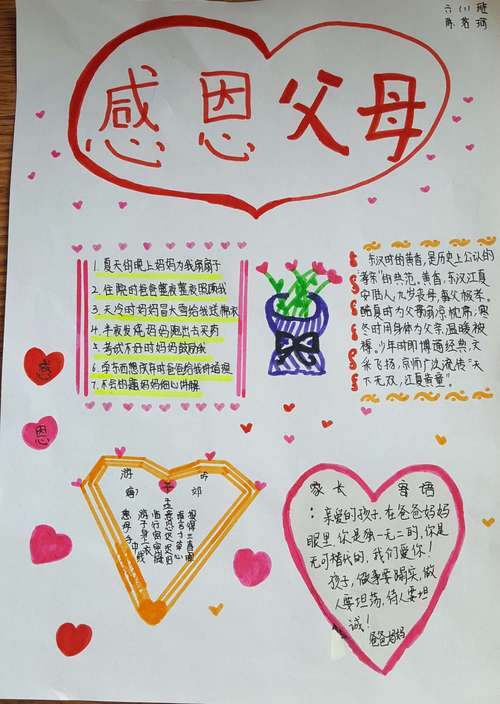 六(1)班
感恩父母
1.夏天的晚上妈妈为我扇扇子
2.住院时爸爸整夜整夜照顾我
3.天冷时妈妈冒大雪给我送棉衣
4.半夜发烧妈妈跑出去买药
5.考试不好时妈妈鼓励我
6.学东西想放弃时爸爸给我讲道理
7.不会的题妈妈细心讲解
东汉时的黄香,是历史上公认的
“孝亲”的典范。黄香,东汉江夏
中国人,九岁丧母,事父极孝。
酷夏时为父亲扇凉枕席,寒
冬时用身体为父亲温暖被
褥。少年时即博通经典,文
采飞扬,京师广泛流传“天
下无双,江夏黄童”。
感
恩
游子吟
孟郊
慈母手中线
游子身上衣
临行密密缝
意恐迟迟归
谁言寸草心
报得三春晖
家长寄语
:亲爱的孩子,在爸爸妈妈
眼里,你是独一无二的,你是
无可替代的,我们爱你!
孩子,做事要踏实,做
人要坦荡,待人要坦
诚!
爸爸妈妈